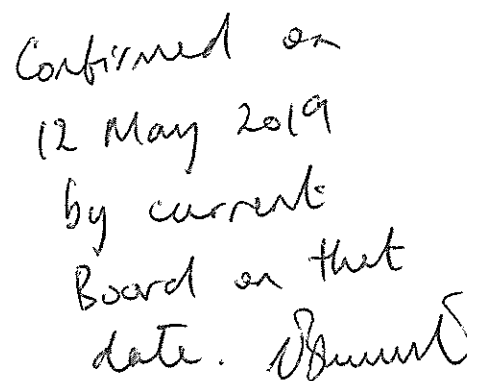 Confirmed on
12 May 2019
by current
Board on that
date.